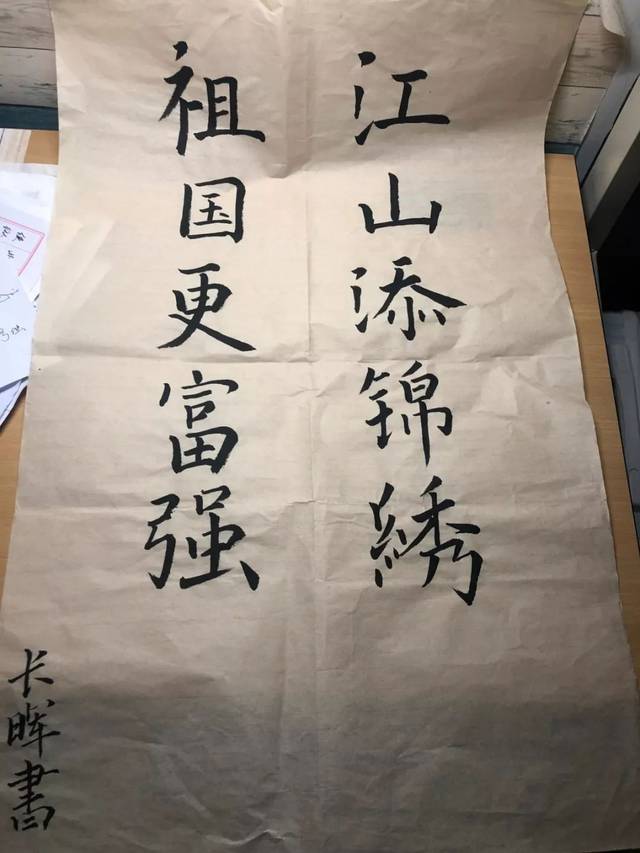 江山添锦綉
祖国更富强
长晖書